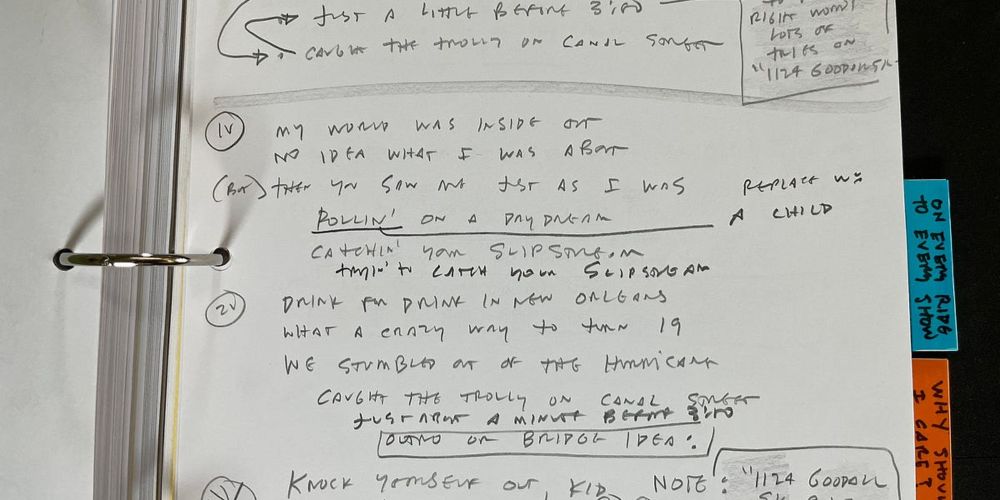 JUST A LITTLE BEFORE 3:00
CAUGHT THE TROLLY ON CANAL STREET
RIGHT WORDS
LOTS OF
TRIES ON
"1124 GOODALL SK-
1V MY WORLD WAS INSIDE OUT
NO IDEA WHAT I WAS ABOUT
(BUT) THEN YOU SAW ME JUST AS I WAS
REPLACE W:
ROLLIN' ON A DAYDREAM
A CHILD
CATCHIN' YOUR SLIPSTREAM
TRYIN' TO CATCH YOUR SLIPSTREAM
2V DRINK FOR DRINK IN NEW ORLEANS
WHAT A CRAZY WAY TO TURN 19
WE STUMBLED OUT OF THE HURRICANE
CAUGHT THE TROLLY ON CANAL STREET
JUST ABOUT A MINUTE BEFORE 3:00
OUTRO OR BRIDGE IDEA:
KNOCK YOURSELF OUT, KID
NOTE: "1124 GOODALL
ON EVERY RIDE
TO EVERY SHOW
WHY SHOU
I CARE?